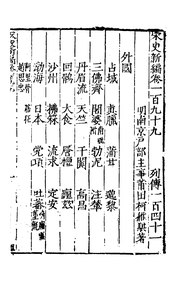 宋史新編卷一百九十九　列傳一百四十一
明南京戶部主事莆田柯維騏著
外國
占城　真臘　蒲甘　邈黎
三佛齊　闍婆　勃泥　注輦
丹眉流　天竺　于闐　高昌
回鶻　大食　層檀　龜茲
沙州　拂菻　流求　定安
渤海　日本　党項　吐蕃